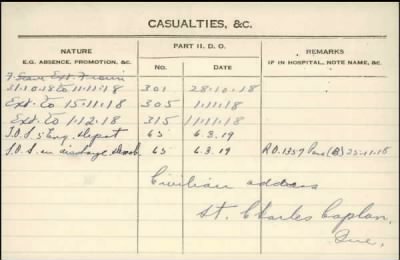 CASUALTIES, &C.
NATURE
E.G. ABSENCE, PROMOTION, &C.
PART II. D. O.
No. DATE
REMARKS
IF IN HOSPITAL, NOTE NAME, &C.
Leave Ext. From
31-10-18 to 11-11-18 301 28-10-18
Ext. to 15-11-18 305 1-11-18
Ext. to 1-12-18 315 11-11-18
T.O.S. Eng. Depot 65 6.3.19
S.O.S. on discharge 65 6.3.19 R.O. 1357 Para (B) 25-11-18
Civilian address
St. Charles Caplan,
Que.